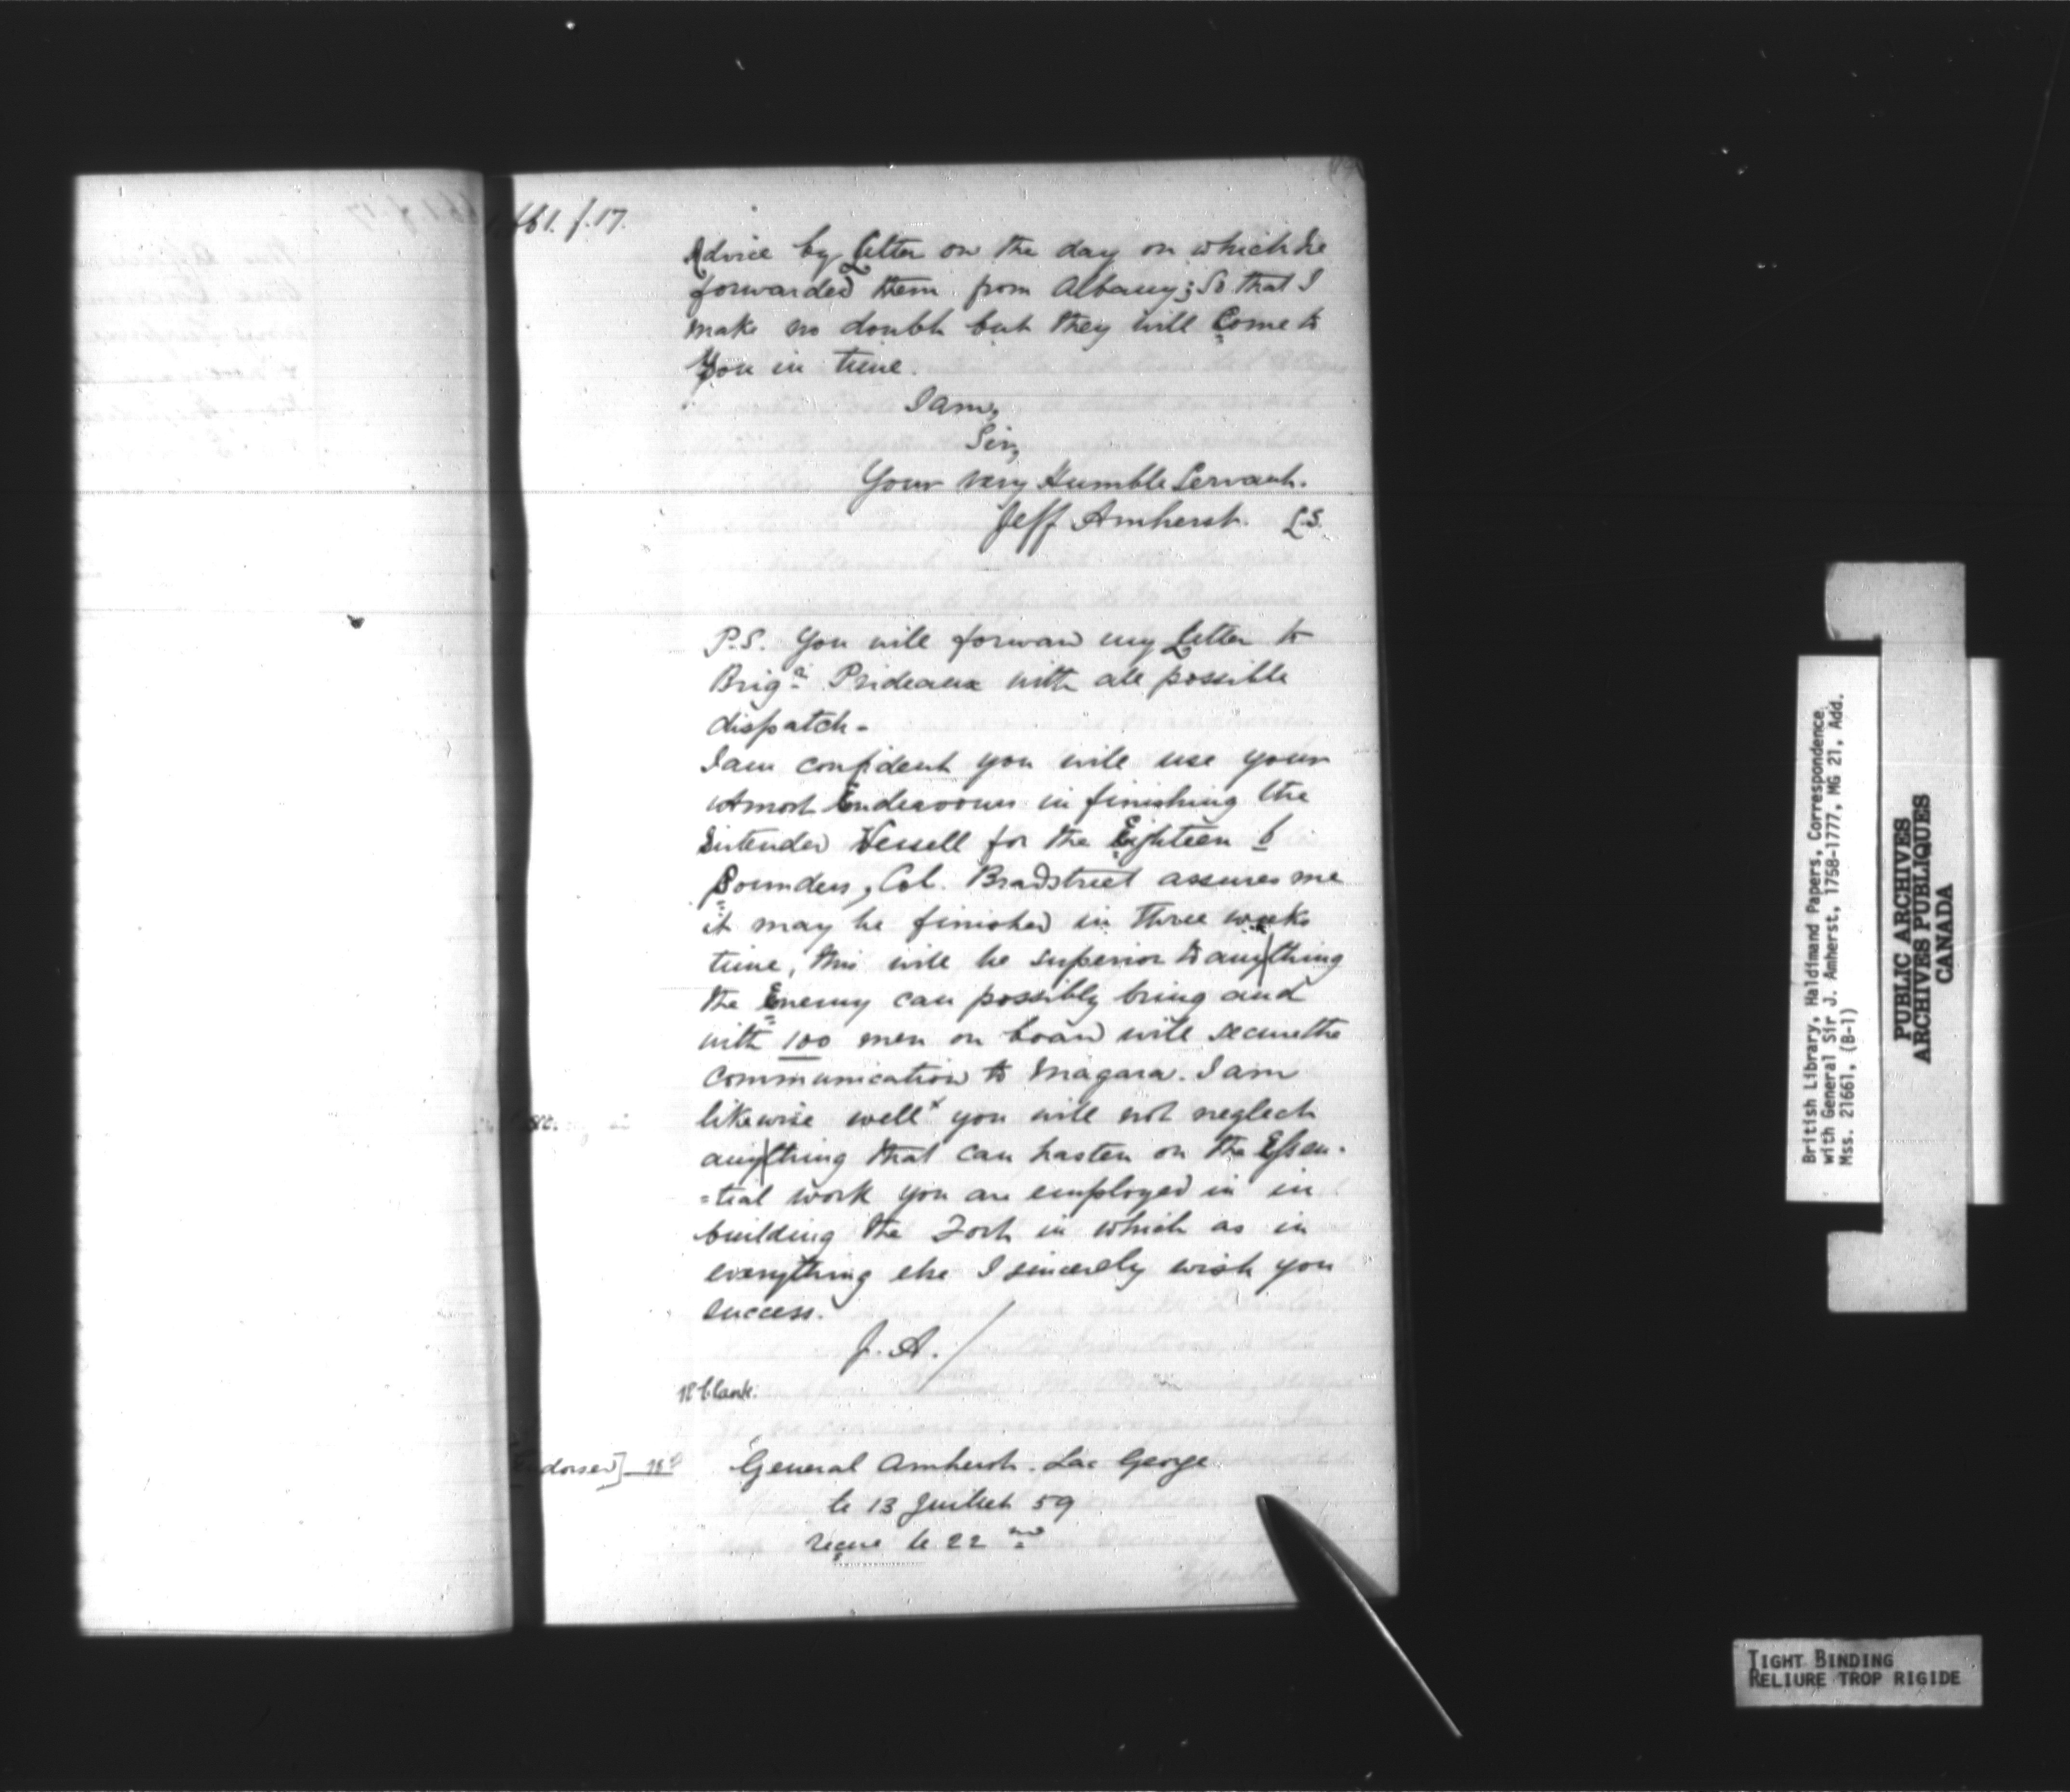 461. f. 17.
Advice by Letter on the day on which he
forwarded them from Albany; So that I
make no doubt but they will Come to
You in time.
I am,
Sir,
Your very Humble Servant.
Jeff Amherst. L.S.
P.S. You will forward my Letter to
Brigr Prideaux with all possible
dispatch -
I am confident you will use your
utmost Endeavours in finishing the
intended Vessell for the Eighteen 6
Pounders, Col. Bradstreet assures me
it may be finished in three weeks
time, this will be superior to any|thing
the Enemy can possibly bring and
with 100 men on board will secure the
Communication to Niagara. I am
likewise well x you will not neglect
any|thing that can hasten on the Essen-
=tial work you are employed in in
building the Fort in which as in
everything else I sincerely wish you
success.
J. A.
18 blank.
Endorsed] 18b General Amherst. Lac George
le 13 Juillet 59
recue le 22 me
British Library, Haldimand Papers, Correspondence
with General Sir J. Amherst, 1758-1777, MG 21, Add.
Mss. 21661, (B-1)
PUBLIC ARCHIVES
ARCHIVES PUBLIQUES
CANADA
TIGHT BINDING
RELIURE TROP RIGIDE